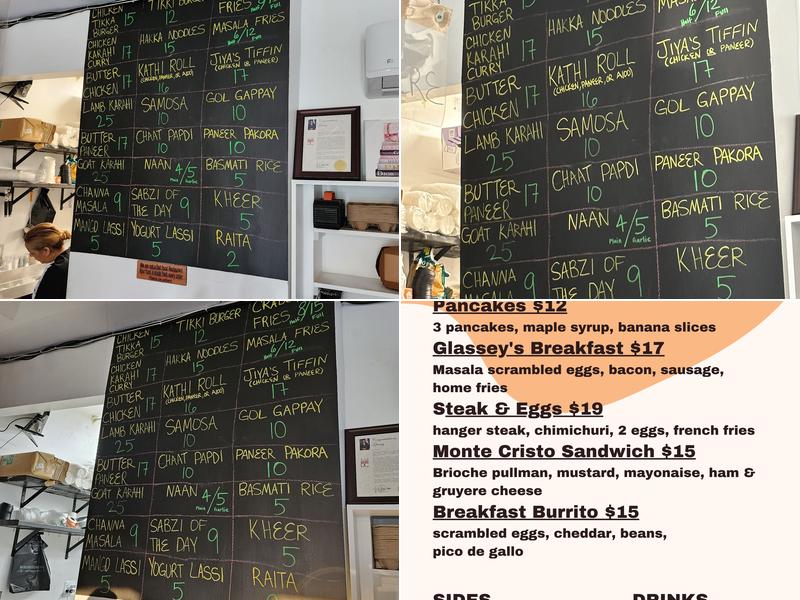 CHICKEN TIKKA BURGER 15
TIKKI BURGER 12
FRIES
CHICKEN KARAHI CURRY 17
HAKKA NOODLES 15
MASALA FRIES 6/12
Half Full
BUTTER CHICKEN 17
KATHI ROLL (CHICKEN, PANEER, OR ALOO) 16
JIYA'S TIFFIN (CHICKEN OR PANEER) 17
LAMB KARAHI 25
SAMOSA 10
GOL GAPPAY 10
BUTTER PANEER 17
CHAAT PAPDI 10
PANEER PAKORA 10
GOAT KARAHI 25
NAAN 4/5
Plain Garlic
BASMATI RICE 5
CHANNA MASALA 9
SABZI OF THE DAY 9
KHEER 5
MANGO LASSI 5
YOGURT LASSI 5
RAITA 2
TIKKA BURGER 15
12
CHICKEN KARAHI CURRY 17
HAKKA NOODLES 15
MASALA FRIES 6/12
Half Full
BUTTER CHICKEN 17
KATHI ROLL (CHICKEN, PANEER, OR ALOO) 16
JIYA'S TIFFIN (CHICKEN OR PANEER) 17
LAMB KARAHI 25
SAMOSA 10
GOL GAPPAY 10
BUTTER PANEER 17
CHAAT PAPDI 10
PANEER PAKORA 10
GOAT KARAHI 25
NAAN 4/5
Plain Garlic
BASMATI RICE 5
CHANNA MASALA 9
SABZI OF THE DAY 9
KHEER 5
CHICKEN TIKKA BURGER 15
TIKKI BURGER 12
FRIES 8/15
Half Full
CHICKEN KARAHI CURRY 17
HAKKA NOODLES 15
MASALA FRIES 6/12
Half Full
BUTTER CHICKEN 17
KATHI ROLL (CHICKEN, PANEER, OR ALOO) 16
JIYA'S TIFFIN (CHICKEN OR PANEER) 17
LAMB KARAHI 25
SAMOSA 10
GOL GAPPAY 10
BUTTER PANEER 17
CHAAT PAPDI 10
PANEER PAKORA 10
GOAT KARAHI 25
NAAN 4/5
Plain Garlic
BASMATI RICE 5
CHANNA MASALA 9
SABZI OF THE DAY 9
KHEER 5
MANGO LASSI 5
YOGURT LASSI 5
RAITA
Pancakes $12
3 pancakes, maple syrup, banana slices
Glassey's Breakfast $17
Masala scrambled eggs, bacon, sausage,
home fries
Steak & Eggs $19
hanger steak, chimichuri, 2 eggs, french fries
Monte Cristo Sandwich $15
Brioche pullman, mustard, mayonaise, ham &
gruyere cheese
Breakfast Burrito $15
scrambled eggs, cheddar, beans,
pico de gallo
SIDES
DRINKS